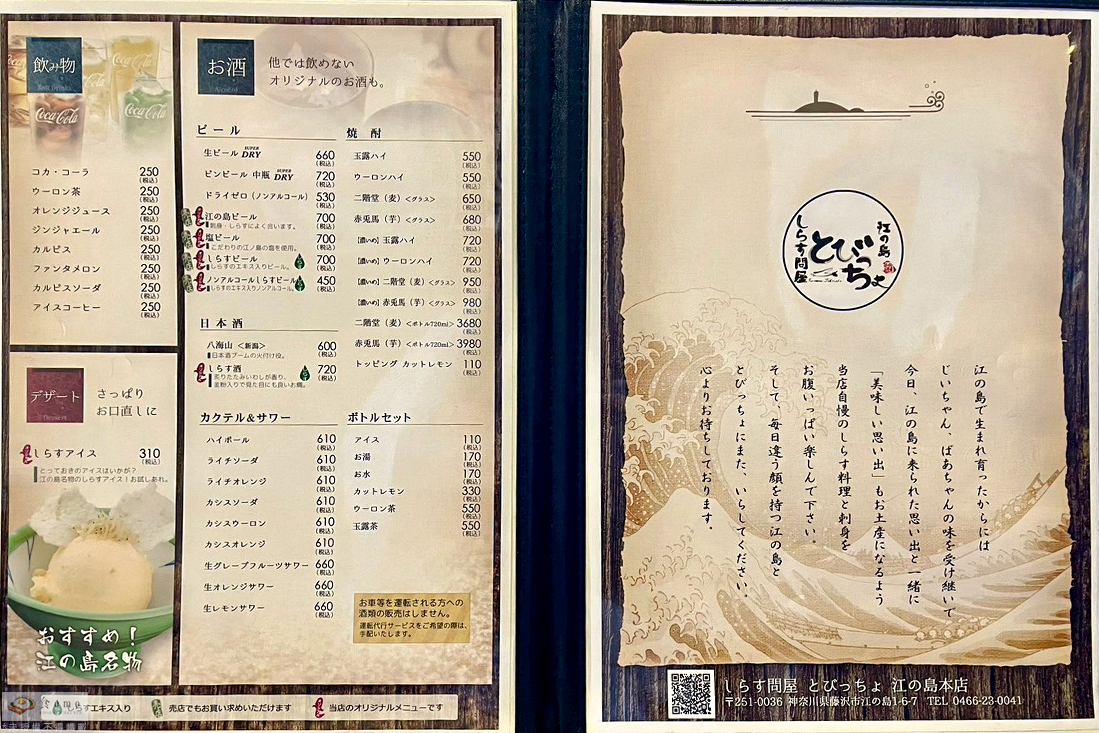 飲み物
Soft Drinks
Coca-Cola
Coca-Cola
コカ・コーラ 250
(税込)
ウーロン茶 250
(税込)
オレンジジュース 250
(税込)
ジンジャエール 250
(税込)
カルピス 250
(税込)
ファンタメロン 250
(税込)
カルピスソーダ 250
(税込)
アイスコーヒー 250
(税込)
デザート
Dessert
さっぱり
お口直しに
しらすアイス 310
(税込)
とっておきのアイスはいかが？
江の島名物のしらすアイス！お試しあれ。
おすすめ！
江の島名物
お酒
Alcohol
他では飲めない
オリジナルのお酒も。
ビール
生ビール SUPER DRY 660
(税込)
ビンビール 中瓶 SUPER DRY 720
(税込)
ドライゼロ（ノンアルコール） 530
(税込)
江の島ビール 700
(税込)
刺身・しらすによく合います。
塩ビール 700
(税込)
こだわりの江ノ島の塩を使用。
しらすビール 700
(税込)
しらすのエキス入りビール。
ノンアルコールしらすビール 450
(税込)
しらすのエキス入りノンアルコール。
日本酒
八海山 ＜新潟＞ 600
(税込)
日本酒ブームの火付け役。
しらす酒 720
(税込)
炙りたたみいわしが香り、
金粉入りで見た目にも良いお燗。
カクテル&サワー
ハイボール 610
(税込)
ライチソーダ 610
(税込)
ライチオレンジ 610
(税込)
カシスソーダ 610
(税込)
カシスウーロン 610
(税込)
カシスオレンジ 610
(税込)
生グレープフルーツサワー 660
(税込)
生オレンジサワー 660
(税込)
生レモンサワー 660
(税込)
焼酎
玉露ハイ 550
(税込)
ウーロンハイ 550
(税込)
二階堂（麦）＜グラス＞ 650
(税込)
赤兎馬（芋）＜グラス＞ 680
(税込)
【濃いめ】玉露ハイ 720
(税込)
【濃いめ】ウーロンハイ 720
(税込)
【濃いめ】二階堂（麦）＜グラス＞ 950
(税込)
【濃いめ】赤兎馬（芋）＜グラス＞ 980
(税込)
二階堂（麦）＜ボトル720ml＞ 3680
(税込)
赤兎馬（芋）＜ボトル720ml＞ 3980
(税込)
トッピング カットレモン 110
(税込)
ボトルセット
アイス 110
(税込)
お湯 170
(税込)
お水 170
(税込)
カットレモン 330
(税込)
ウーロン茶 550
(税込)
玉露茶 550
(税込)
お車等を運転される方への
酒類の販売はしません。
運転代行サービスをご希望の際は、
手配いたします。
すエキス入り
売店でもお買い求めいただけます
当店のオリジナルメニューです
江の島
とびっちょ
しらす問屋
江の島で生まれ育ったからには
じいちゃん、ばあちゃんの味を受け継いで
今日、江の島に来られた思い出と一緒に
「美味しい思い出」もお土産になるよう
当店自慢のしらす料理と刺身を
お腹いっぱい楽しんで下さい。
そして、毎日違う顔を持つ江の島と
とびっちょにまた、いらしてください。
心よりお待ちしております。
しらす問屋 とびっちょ 江の島本店
〒251-0036 神奈川県藤沢市江の島1-6-7 TEL 0466-23-0041